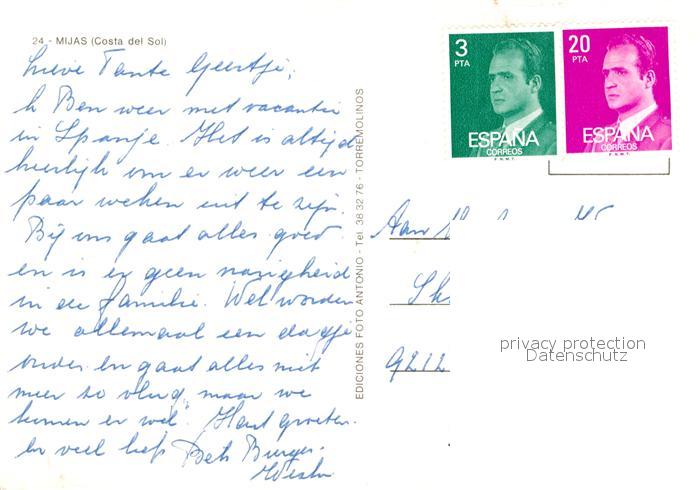 24 - MIJAS (Costa del Sol)
Lieve Tante Geertje,
Ik Ben weer met vacantie
in Spanje. Het is altijd
heerlijk om er weer een
paar weken uit te zijn.
Bij ons gaat alles goed
en is er geen narigheid
in de familie. Wel worden
we allemaal een dagje
ouder en gaat alles niet
meer zo vlug, maar we
komen er wel". Hart. groeten.
en veel liefs Bets Burger.
EDICIONES FOTO ANTONIO - Tel. 38 32 76 - TORREMOLINOS
3
PTA
ESPAÑA
CORREOS
F.N.M.T.
20
PTA
ESPAÑA
CORREOS
F.N.M.T.
Aan
9212
privacy protection
Datenschutz